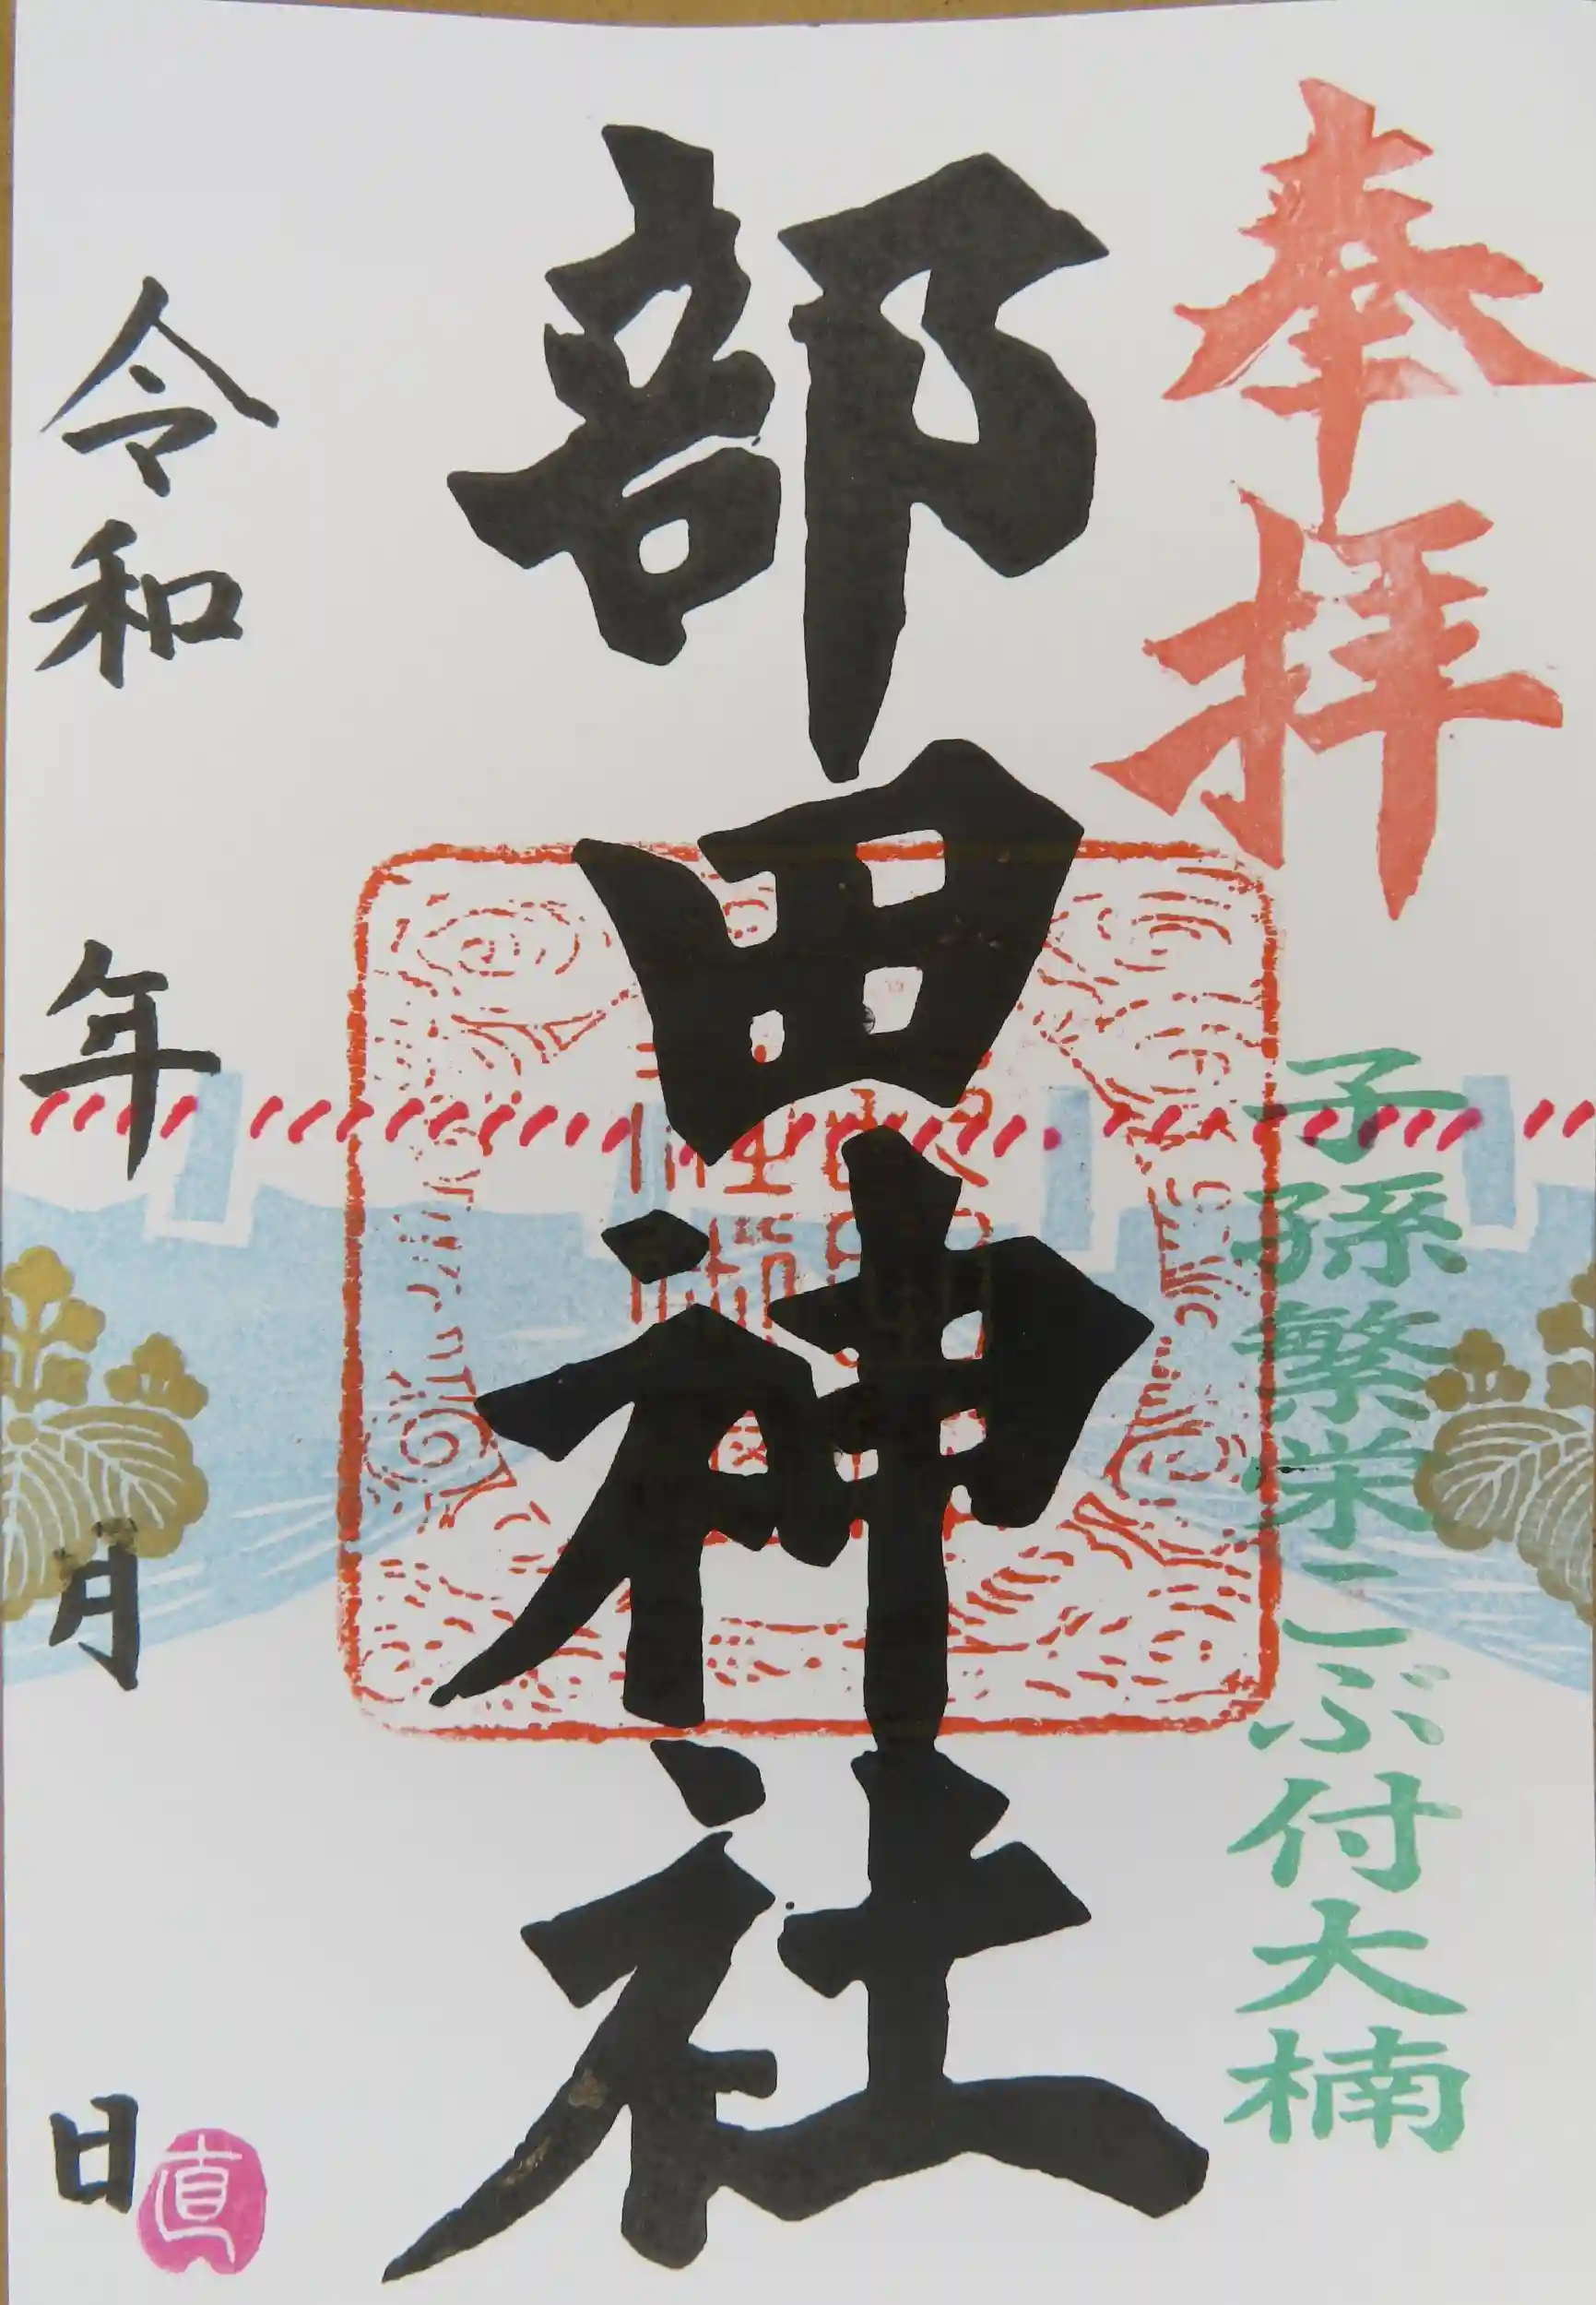 奉拝
子孫繁栄こぶ付大楠
部田神社
令和 年 月 日
直